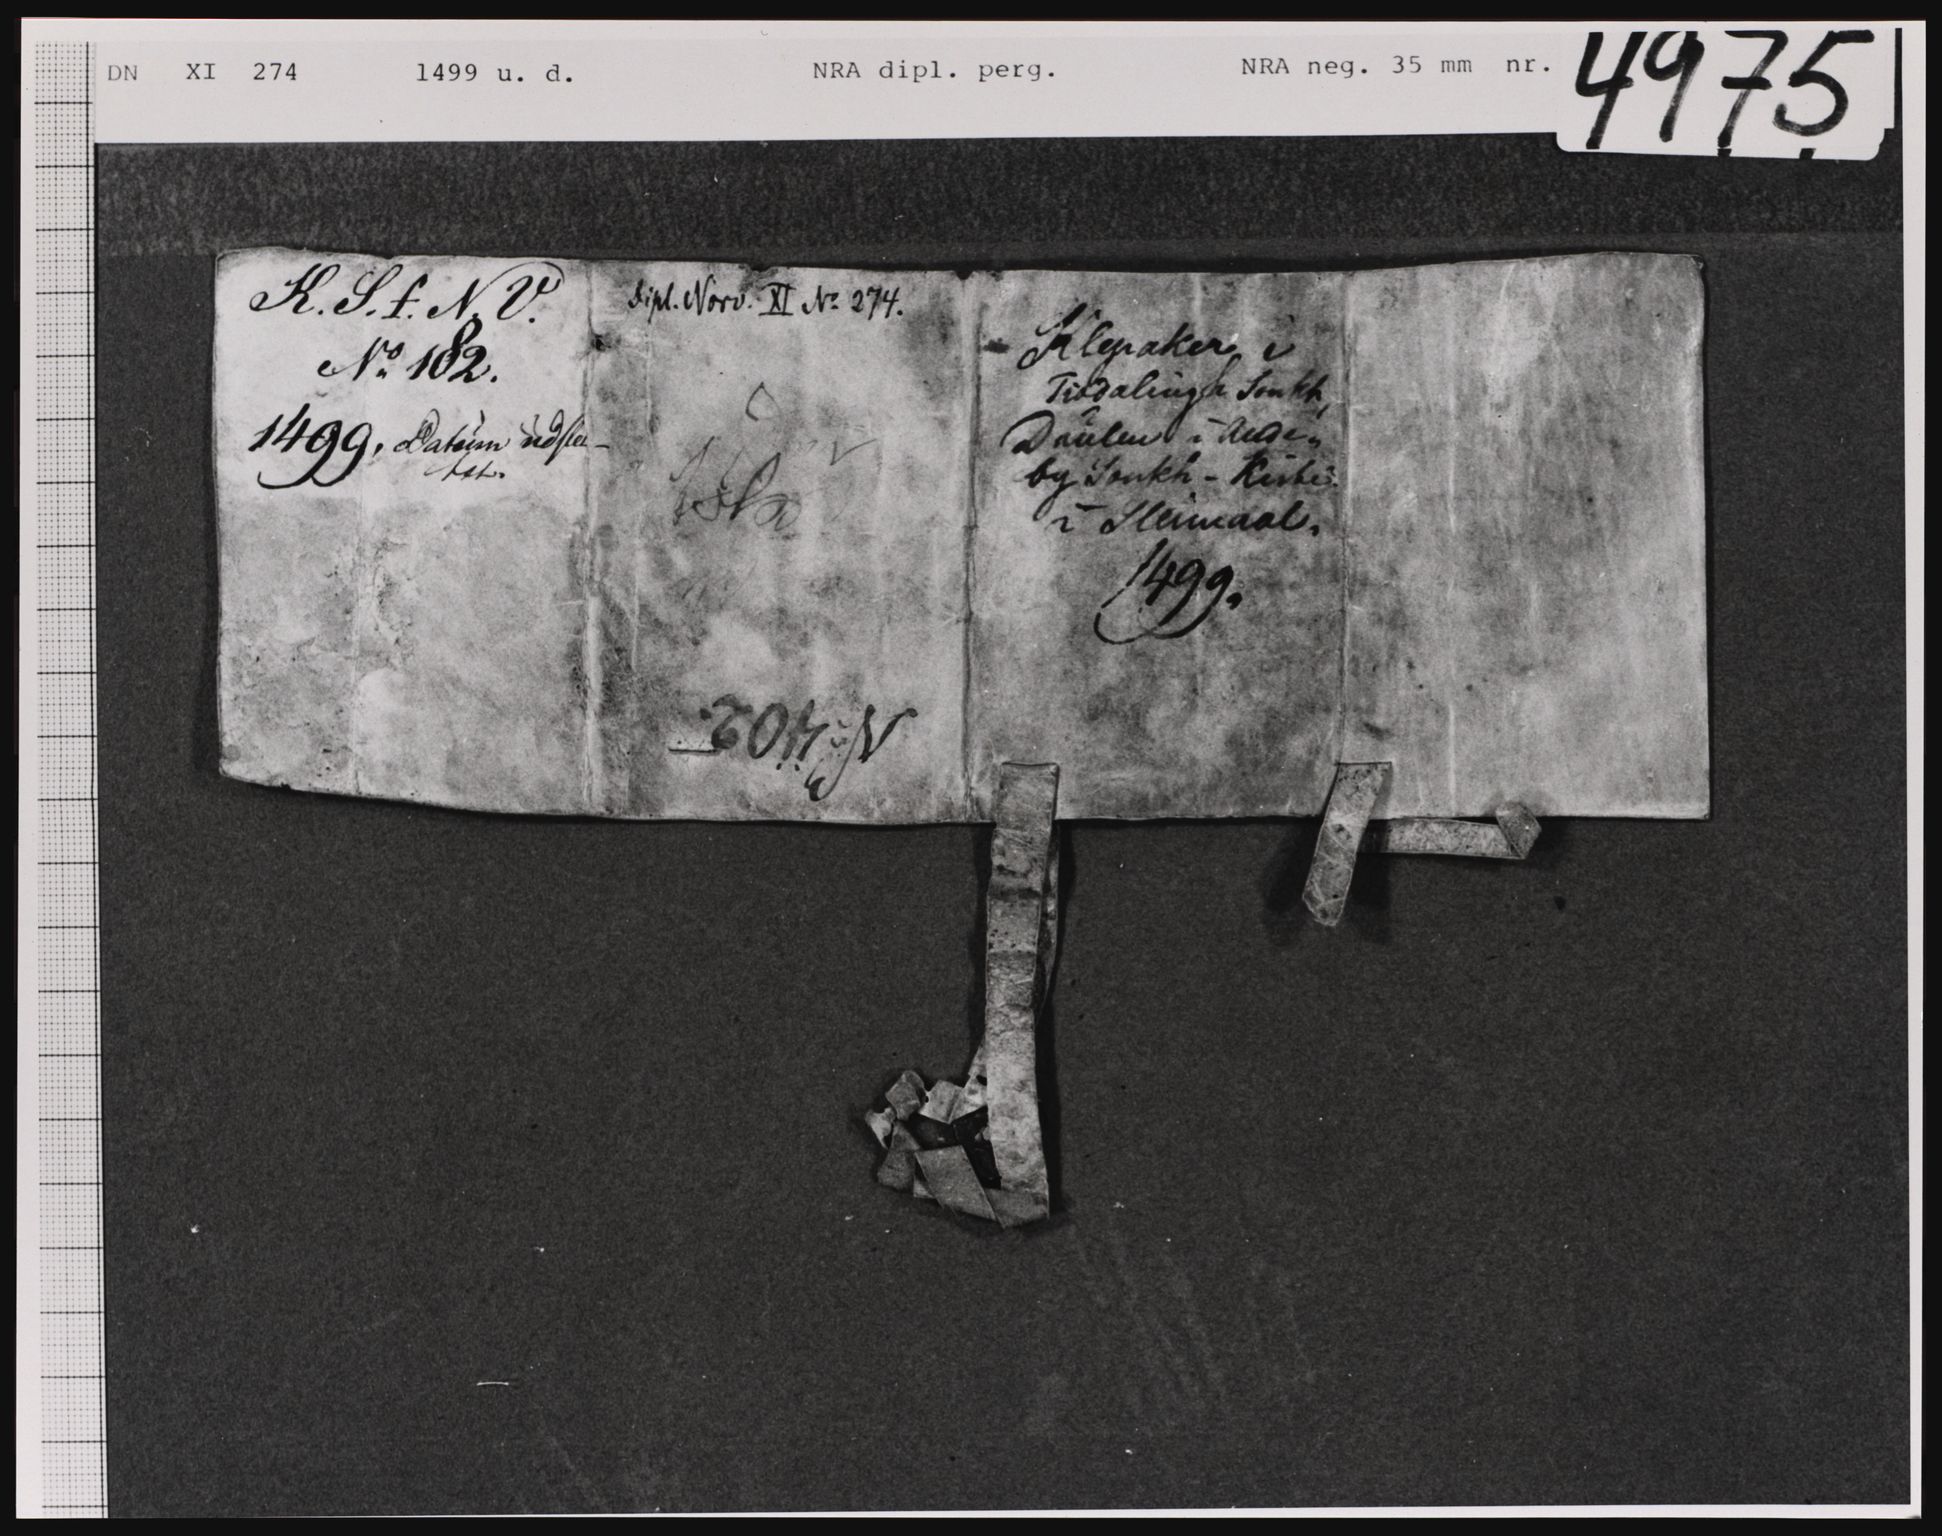 DN XI 274 1499 u. d. NRA dipl. perg. NRA neg. 35 mm nr. 4975
K. S. f. N. V.
No 182.
1499. Datum udslet-
tet.
Dipl. Norv. XI No 274.
No 402.
Klepaker i
Tiödalings Sonkh,
Däulen i Ande-
by Sonkh - Kirke
i Slemdal.
1499.